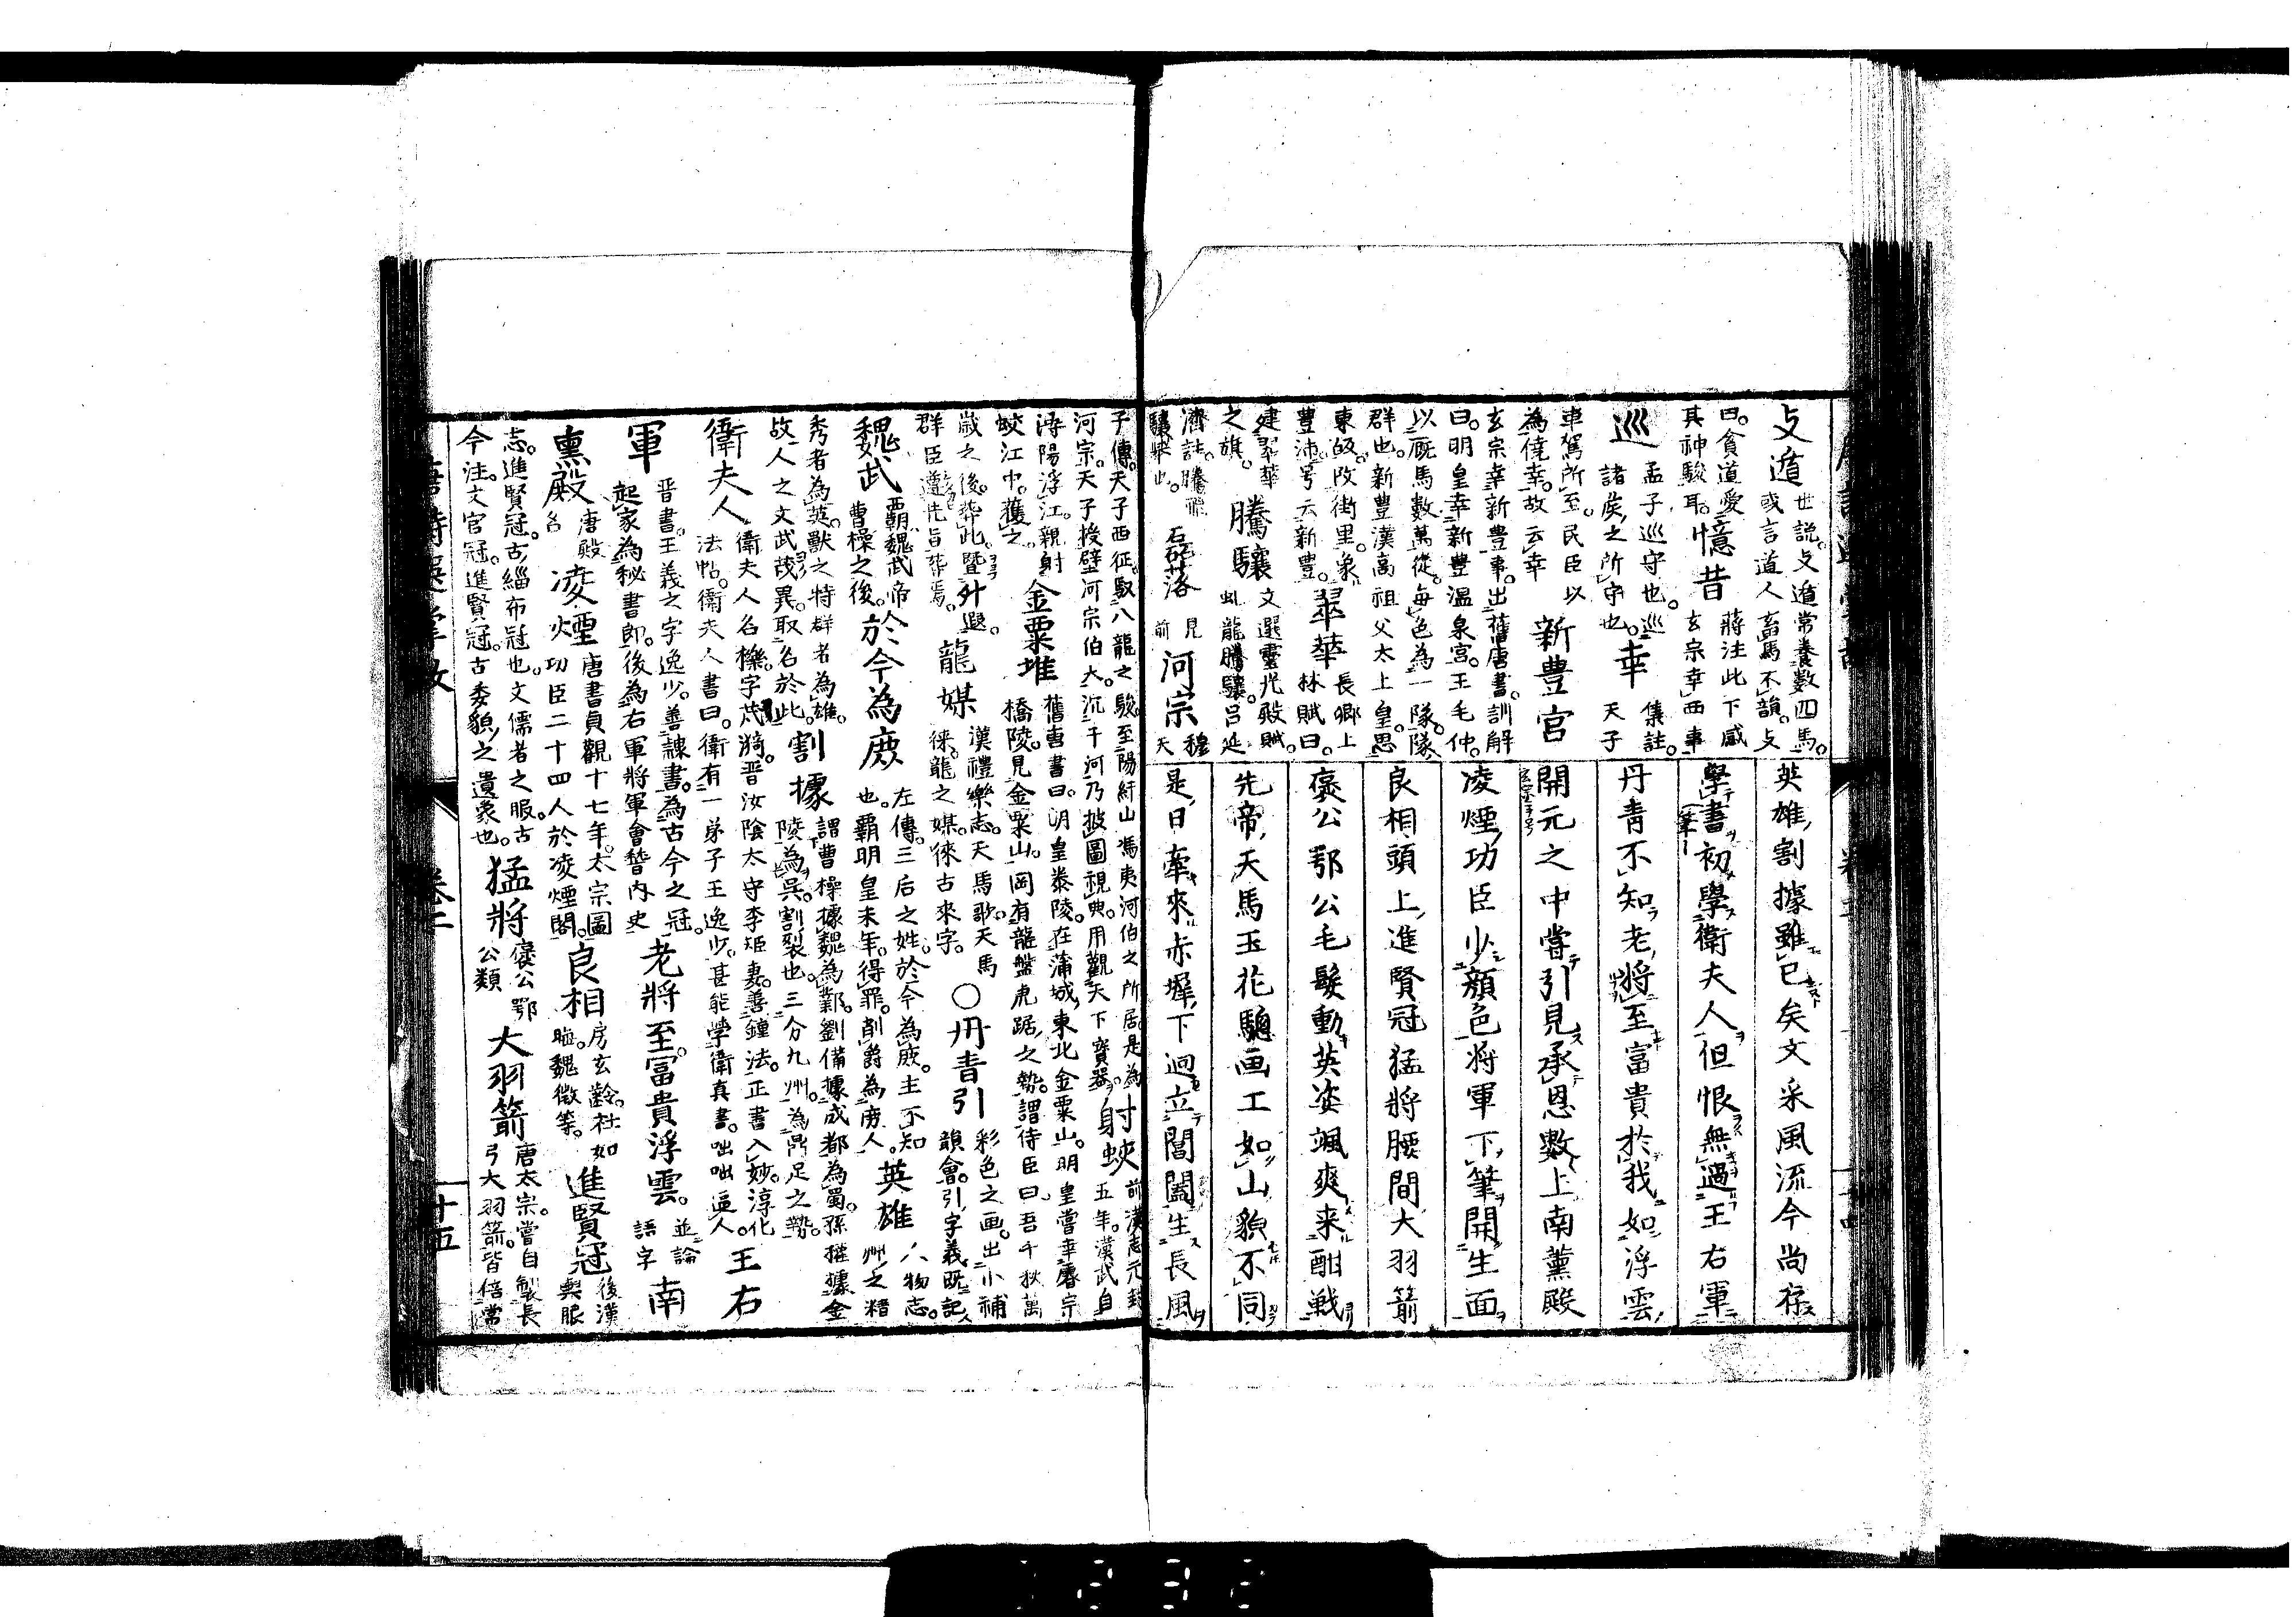 支遁世説。支遁常養數四馬。或言道人畜馬不韻。支
曰。貧道愛其神駿耳。憶昔蔣注此下感玄宗幸西事
巡孟子巡守也。巡諸侯之所守也。幸集註。天子
車駕所至。民臣以為僥幸。故云幸新豊宮
玄宗幸新豊事。出舊唐書。訓解曰。明皇幸新豊温泉宮。王毛仲。
以厩馬數萬從。每色為一隊。隊群也。新豊漢高祖父太上皇。思
東皈。改街里。象豊沛。号云新豊。翠華長郷上林賦曰。
建翠華之旗。騰驤文選靈光殿賦。虬龍騰驤。呂延
濟註。騰驤驤樂也。磊落見前河宗穆天
英雄割據雖已矣文采風流今尚存
學書初學衛夫人但恨無過王右軍
丹青不知老將至富貴於我如浮雲
開元之中嘗引見承恩數上南薫殿
凌煙功臣少顔色將軍下筆開生面
良相頭上進賢冠猛將腰間大羽箭
褒公鄂公毛髮動英姿颯爽来酣戦
先帝天馬玉花驄画工如山貌不同
是日牽來赤墀下迥立閶闔生長風
子傳。天子西征。馭八龍之駿。至陽紆山馮夷河伯之所居。是為
河宗。天子授璧河宗伯大。沉于河乃披圖視典。用觀天下寶器。射蛟前漢志元封五年。漢武自
潯陽浮江。親射蛟江中。獲之。金粟堆舊唐書曰。明皇泰陵。在蒲城東北金粟山。明皇嘗幸睿宗
橋陵。見金粟山。岡有龍盤虎踞之勢。謂侍臣曰。吾千秋萬
歳之後。葬此。暨升遐。群臣遵先旨葬焉。龍媒漢禮樂志。天馬歌。天馬徠。龍之媒。徠古來字。
○丹青引彩色之画。出小補韻會。引字義既記
魏武覇魏武帝曹操之後。於今為庶左傳。三后之姓。於今為庶。主不知
也。覇明皇末年。得罪。削爵為庶人。英雄人物志。
秀者為英。獸之特群者為雄。故人之文武茂異。取名於此。割據謂曹操據魏為鄴。劉備據成都為蜀。孫權據金
陵為呉。割裂也。三分九州。為鼎足之勢。
衛夫人衛夫人名櫟。字茂漪。晋汝陰太守李矩妻。善鐘法。正書入妙。淳化
法帖。衛夫人書曰。衛有一弟子王逸少。甚能學衛真書。咄咄逼人。王右
軍晋書。王羲之字逸少。善隷書。為古今之冠。
起家為秘書郎。後為右軍將軍會稽内史老將至。富貴浮雲。並論語字南
薫殿唐殿名凌煙唐書貞觀十七年。太宗圖功臣二十四人於凌煙閣。良相房玄齡。杜如晦。魏徴等。進賢冠後漢輿服
志。進賢冠。古緇布冠也。文儒者之服。古
今注。文官冠。進賢冠。古委貌之遺象也。猛將褒公鄂公類大羽箭唐太宗。嘗自製長弓大羽箭。皆倍常
卷二
十五